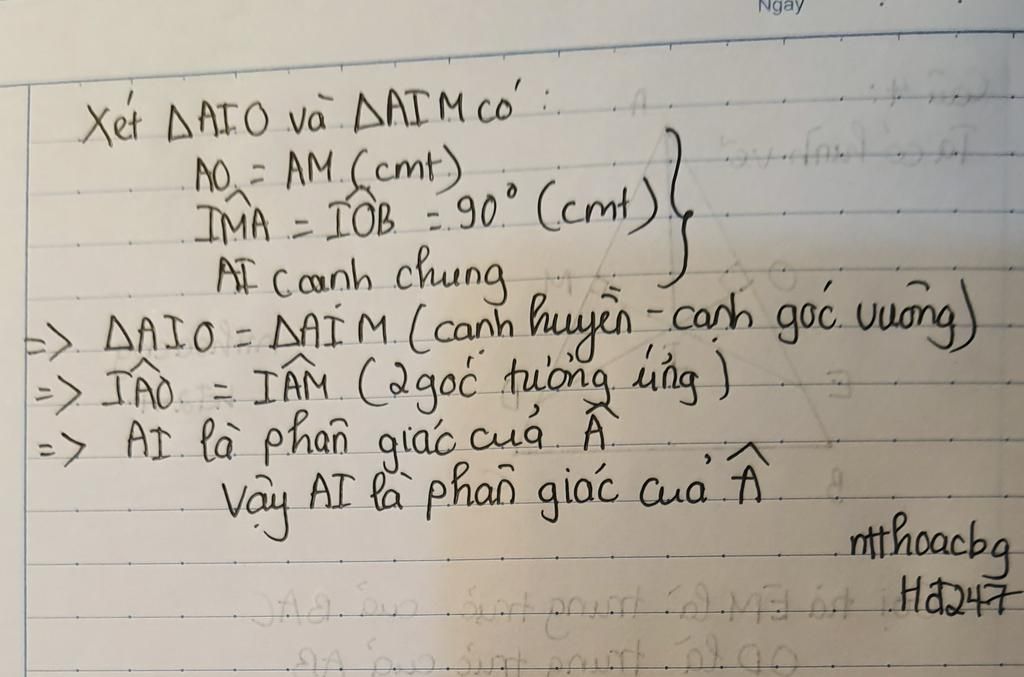 Ngày
Xét ΔAIO và ΔAIM có :
AO = AM (cmt)
IM̂A = IÔB = 90° (cmt) }
AI cạnh chung
=> ΔAIO = ΔAIM (cạnh huyền - cạnh góc vuông)
=> IÂO = IÂM (2 góc tương ứng)
=> AI là phân giác của Â
Vậy AI là phân giác của Â
ntthoacbg
Hđ247